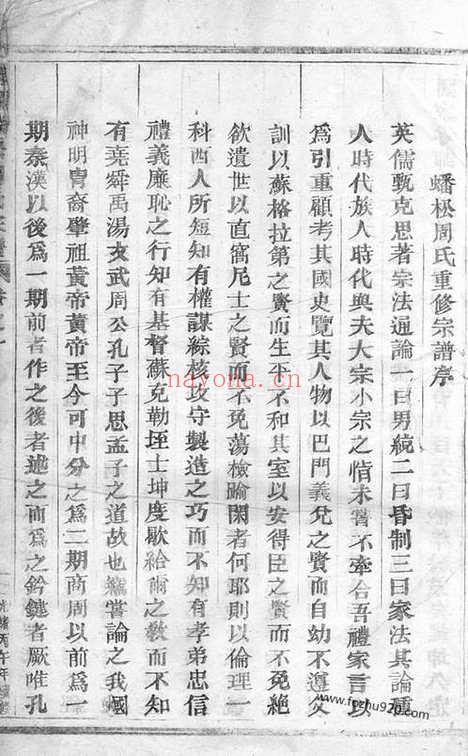 蟠松周氏重修宗譜序
英儒甄克思著宗法通論一曰男統二曰昏制三曰家法其論種
人時代族人時代與夫大宗小宗之情未嘗不牽合吾禮家言以
為引重顧考其國史覽其人物以巴門義兌之賢而自幼不遵父
訓以蘇格拉第之賢而生平不和其室以安得臣之賢而不免絕
欲遺世以直窩尼士之賢而不免蕩檢踰閑者何耶則以倫理一
科西人所短知有權謀綜核攻守製造之巧而不知有孝弟忠信
禮義廉恥之行知有基督蘇克勒垤士坤度歇給爾之教而不知
有堯舜禹湯文武周公孔子子思孟子之道故也竊嘗論之我國
神明胄裔肇祖黃帝黃帝至今可中分之為二期商周以前為一
期秦漢以後為一期前者作之後者述之而為之鈐鍵者厥唯孔
nayona.cn
www.foxhu920.com